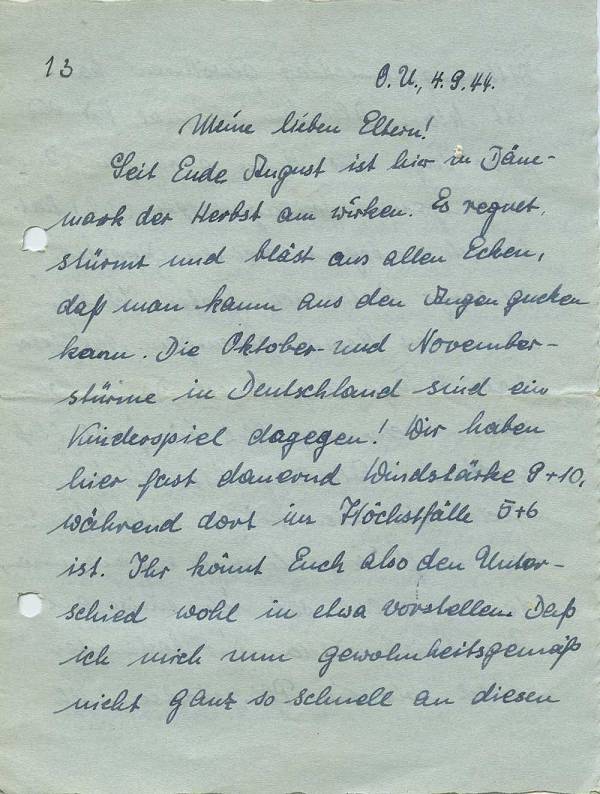 13
O.U., 4.9.44.
Meine lieben Eltern!
Seit Ende August ist hier in Däne-
mark der Herbst am wirken. Es regnet,
stürmt und bläst aus allen Ecken,
daß man kaum aus den Augen gucken
kann. Die Oktober- und November-
stürme in Deutschland sind ein
Kinderspiel dagegen! Wir haben
hier fast dauernd Windstärke 9+10,
während dort im Höchstfälle 5+6
ist. Ihr könnt Euch also den Unter-
schied wohl in etwa vorstellen. Daß
ich mich nun gewohnheitsgemäß
nicht ganz so schnell an diesen